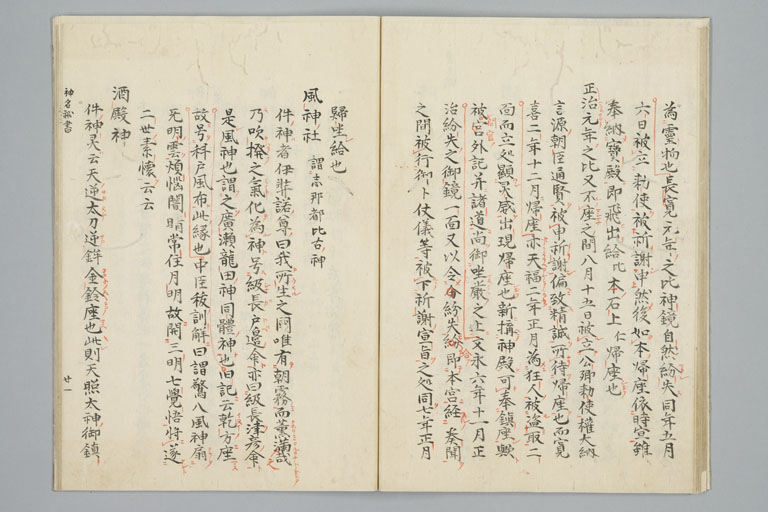 為靈物也長寛元年之比神鏡自然紛失同年五月
六日被立勅使被祈謝申然後如本帰座依時宣雖
奉納寶殿即飛出給比本石上仁帰座也
正治元年之比又不座之間八月十五日被立公卿勅使權大納
言源朝臣通賢被申祈謝偏致精誠所待帰座也而寛
喜二年十二月帰座亦天福二年正月為狂人被盗取二
面而立処顕冥感出現帰座也新搆神殿可奉鎮座歟
被召外記并諸道尚御坐嚴之上文永六年十一月正
治紛失之御鏡一面又以令紛失給即本宮経奏聞
之間被行御卜仗儀等被下祈謝宣旨之処同七年正月
歸坐給也
風神社 謂志那都比古神
件神者伊弉諾尊曰我所生之國唯有朝霧而薫満哉
乃吹撥之氣化為神号級長戸邊命亦曰級長津彦命
是風神也謂之廣瀬龍田神同體神也旧記云乾方座
故号科戸風布此縁也中臣秡訓解曰謂驚八風神扇
无明雲煩惱闇晴常住月明故開三明七覺悟将遂
二世素懐云云
酒殿神
件神灵云天逆太刀逆鉾金鈴座也此則天照太神御鎮
神名秘書
廿一